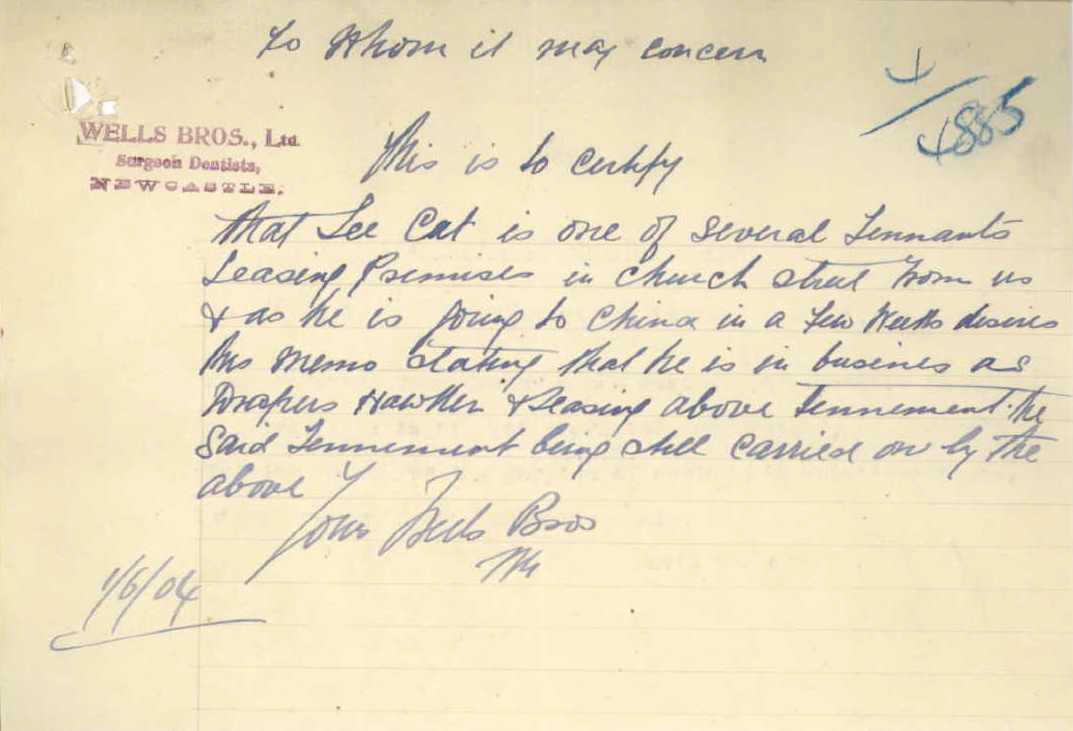 To Whom it may concern
4885
WELLS BROS., Ltd.
Surgeon Dentists,
NEWCASTLE.
This is to Certify
that Lee Cat is one of several Tennants
Leasing Premises in Church street from us
& as he is going to China in a few Weeks desires
this Memo stating that he is in busines as
Drapers Hawker & Leasing above tennement. the
Said Tennement being still carried on by the
above
Yours Wells Bros
1/6/04